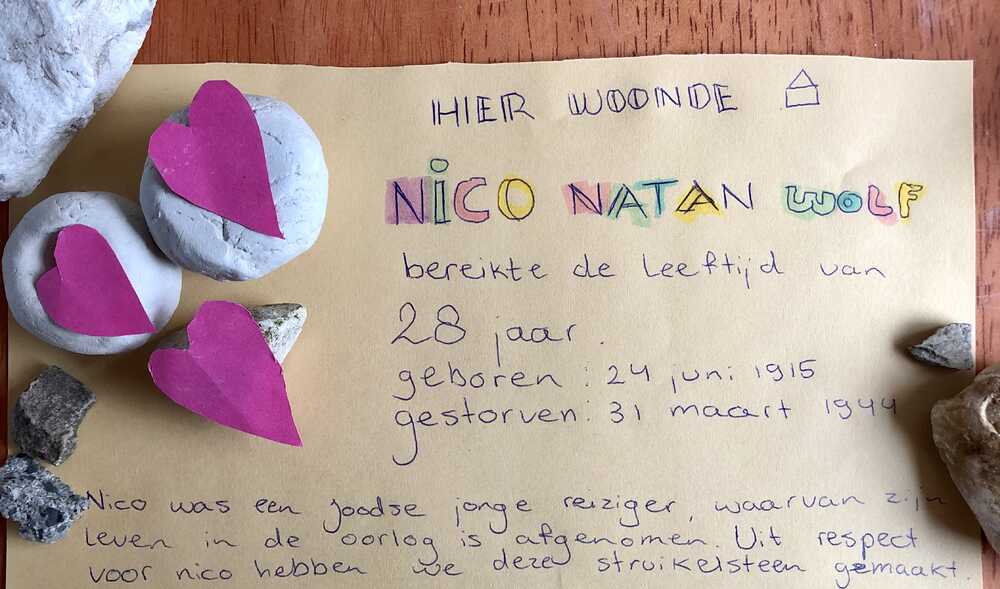 HIER WOONDE
NiCO NATAN WOLF
bereikte de leeftijd van
28 jaar.
geboren : 24 juni 1915
gestorven: 31 maart 1944
Nico was een joodse jonge reiziger, waarvan zijn
leven in de oorlog is afgenomen. Uit respect
voor nico hebben we deze struikelsteen gemaakt.